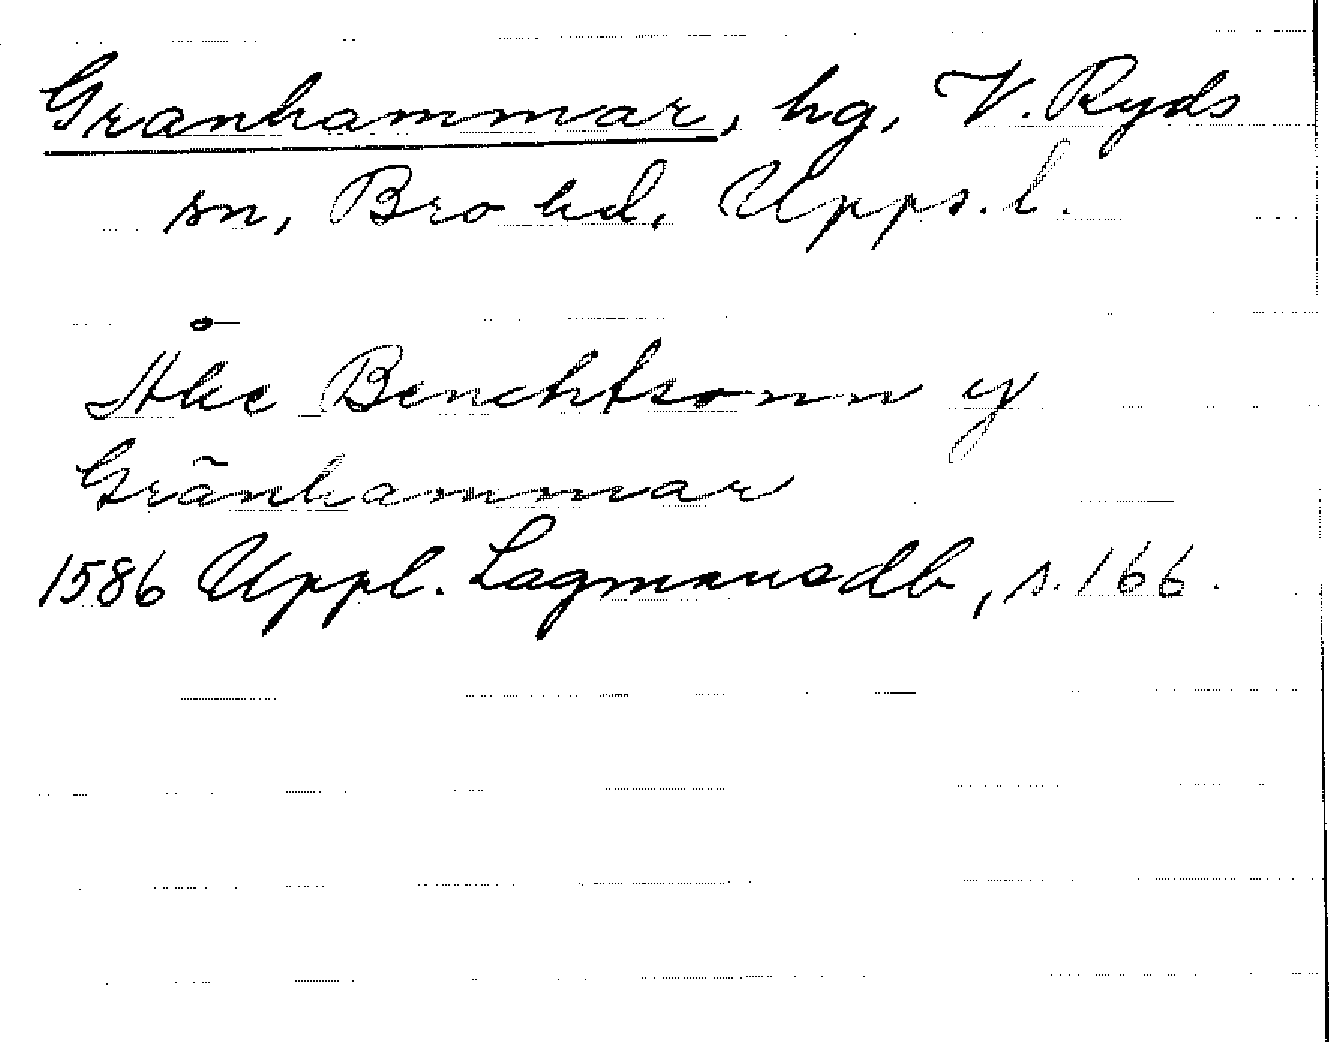 Granhammar, hg, V. Ryds
sn, Bro hd, Upps. l.
Åke Benchtsonn y
Grãnhammar
1586 Uppl. Lagmansdb, s. 166.